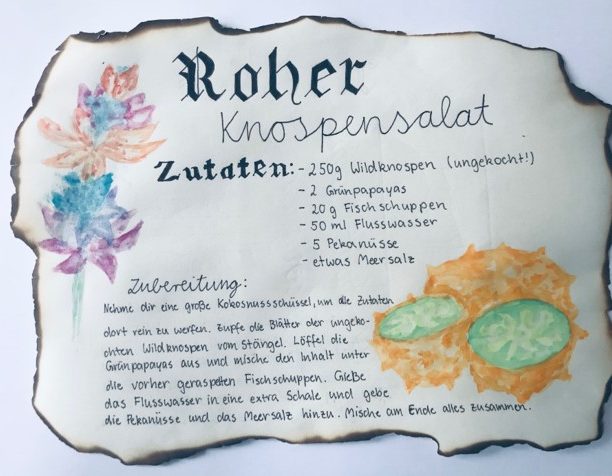 Roher
Knospensalat
Zutaten: - 250g Wildknospen (ungekocht!)
- 2 Grünpapayas
- 20g Fischschuppen
- 50 ml Flusswasser
- 5 Pekanüsse
- etwas Meersalz
Zubereitung:
Nehme dir eine große Kokosnussschüssel, um die Zutaten
dort rein zu werfen. Zupfe die Blätter der ungeko-
chten Wildknospen vom Stängel. Löffel die
Grünpapayas aus und mische den Inhalt unter
die vorher geraspelten Fischschuppen. Gieße
das Flusswasser in eine extra Schale und gebe
die Pekanüsse und das Meersalz hinzu. Mische am Ende alles zusammen.